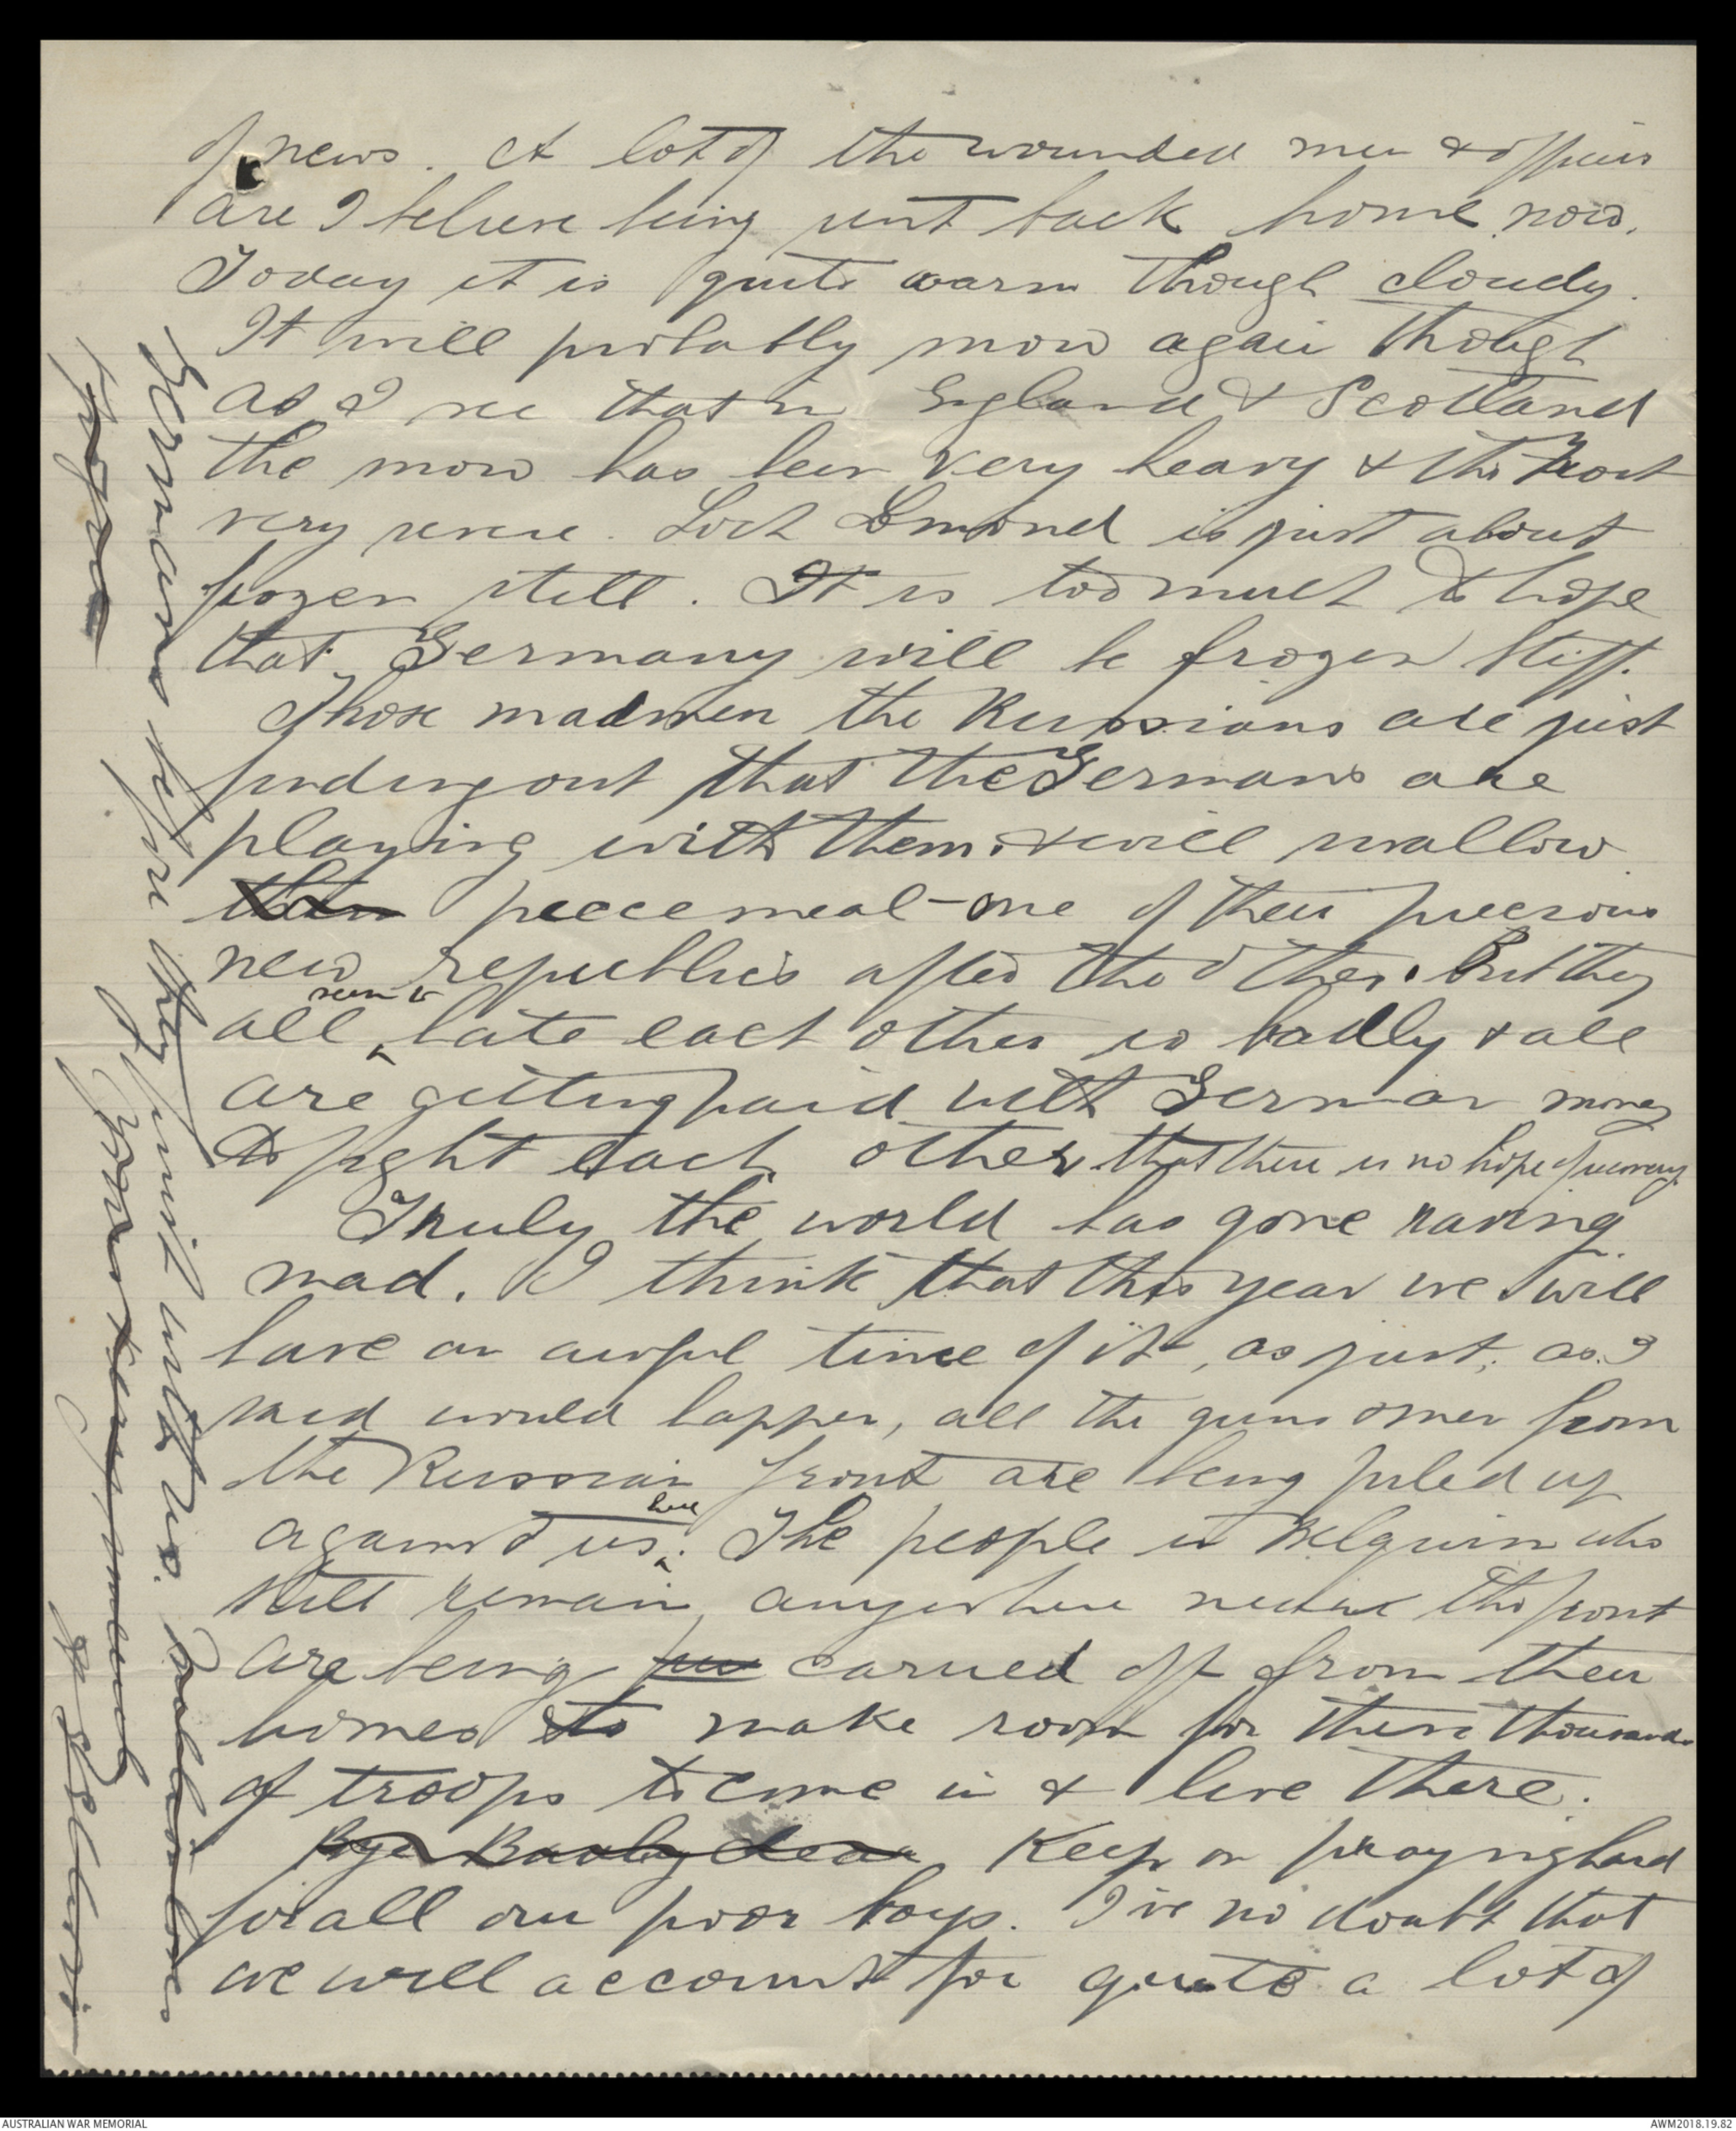 of news. A lot of the wounded men & officers
are I believe being sent back home now.
Today it is quite warm though cloudy.
It will probably snow again though
as I see that in England & Scotland
the snow has been very heavy & the frost
very severe. Loch Lomond is just about
frozen still. It is too much to hope
that Germany will be frozen stiff.
Those madmen the Russians are just
finding out that the Germans are
playing with them & will swallow
them piecemeal - one of their precious
new republics after the other. But they
all seem to hate each other so badly & all
are getting paid with German money
to fight each other that there is no hope of recovery
Truly the world has gone raving
mad. I think that this year we will
have an awful time of it, as just, as I
said would happen, all the guns & men from
the Russian front are being piled up
against us here. The people in Belguim who
still remain anywhere near the front
are being carried off from their
homes to make room for these thousands
of troops to come in & live there.
Bye Baaby dear Keep on praying hard
for all our poor boys. I've no doubt that
we will account for quite a lot of
Germans before they finish with us.
Yours